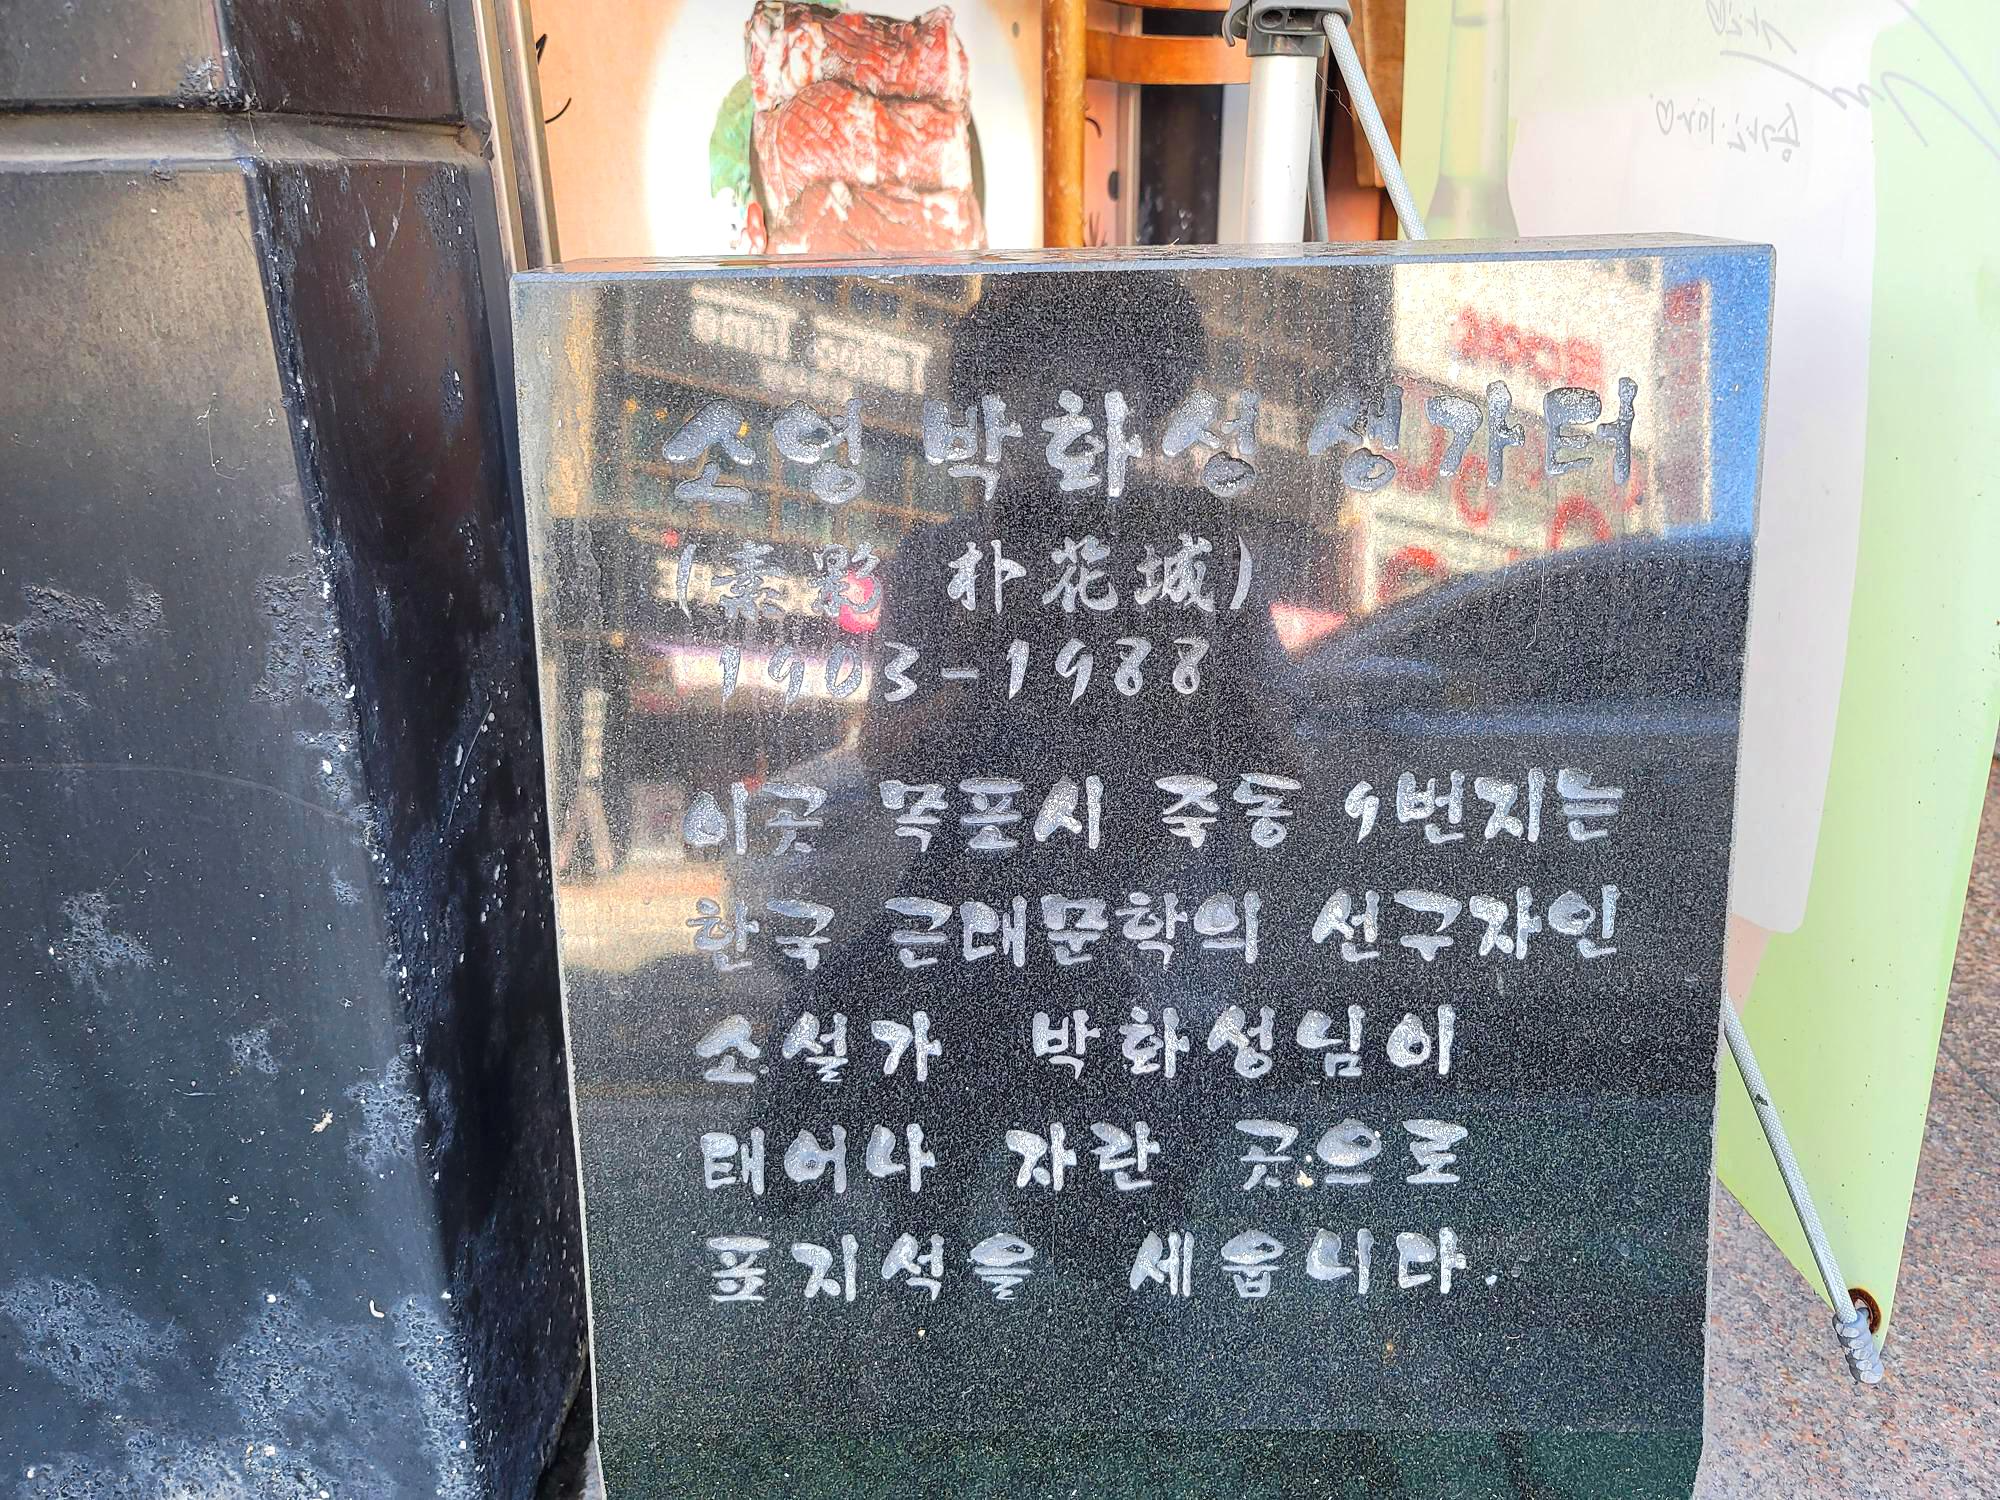 소영 박화성 생가터
(素影 朴花城)
1903-1988
이곳 목포시 죽동 9번지는
한국 근대문학의 선구자인
소설가 박화성님이
태어나 자란 곳으로
표지석을 세웁니다.